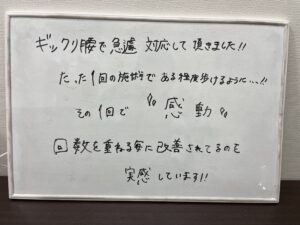 ギックリ腰で急遽 対応して頂きました!!
たった1回の施術で ある程度歩けるように...!!
その1回で 〝感動〟
回数を重ねる毎に改善されてるのも
実感しています!!